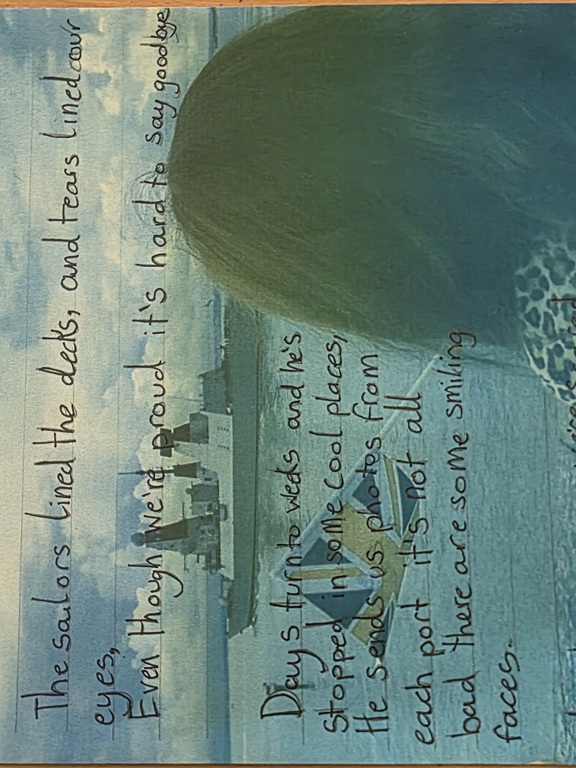 The sailors lined the decks, and tears lined our
eyes,
Even though we're proud it's hard to say goodbye
Days turn to weeks and he's
stopped in some cool places,
He sends us photos from
each port it's not all
bad there are some smiling
faces.